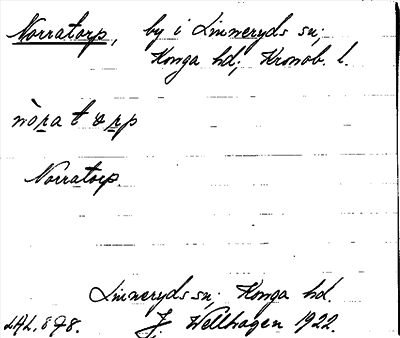 Norratorp, by i Linneryds sn;
Konga hd; Kronob. l.
nòrat årp
Norratorp.
Linneryds sn; Konga hd.
LAL. 898. J. Wellhagen 1922.